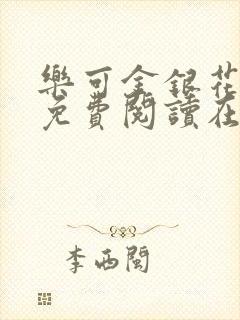 樂可金銀花
免費閱讀在
李西閩